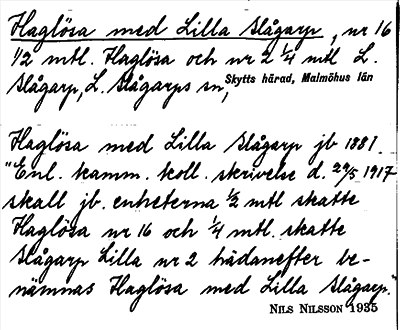 Haglösa med Lilla Slågarp, nr 16
1/2 mtl. Haglösa och nr 2 1/4 mtl L.
Slågarp, L. Slågarps sn, Skytts härad, Malmöhus län
Haglösa med Lilla Slågarp jb 1881.
"Enl. kamm. koll. skrivelse d. 29/5 1917
skall jb. enheterna 1/2 mtl skatte
Haglösa nr 16 och 1/4 mtl. skatte
Slågarp Lilla nr 2 hädanefter be-
nämnas Haglösa med Lilla Slågarp."
NILS NILSSON 1935